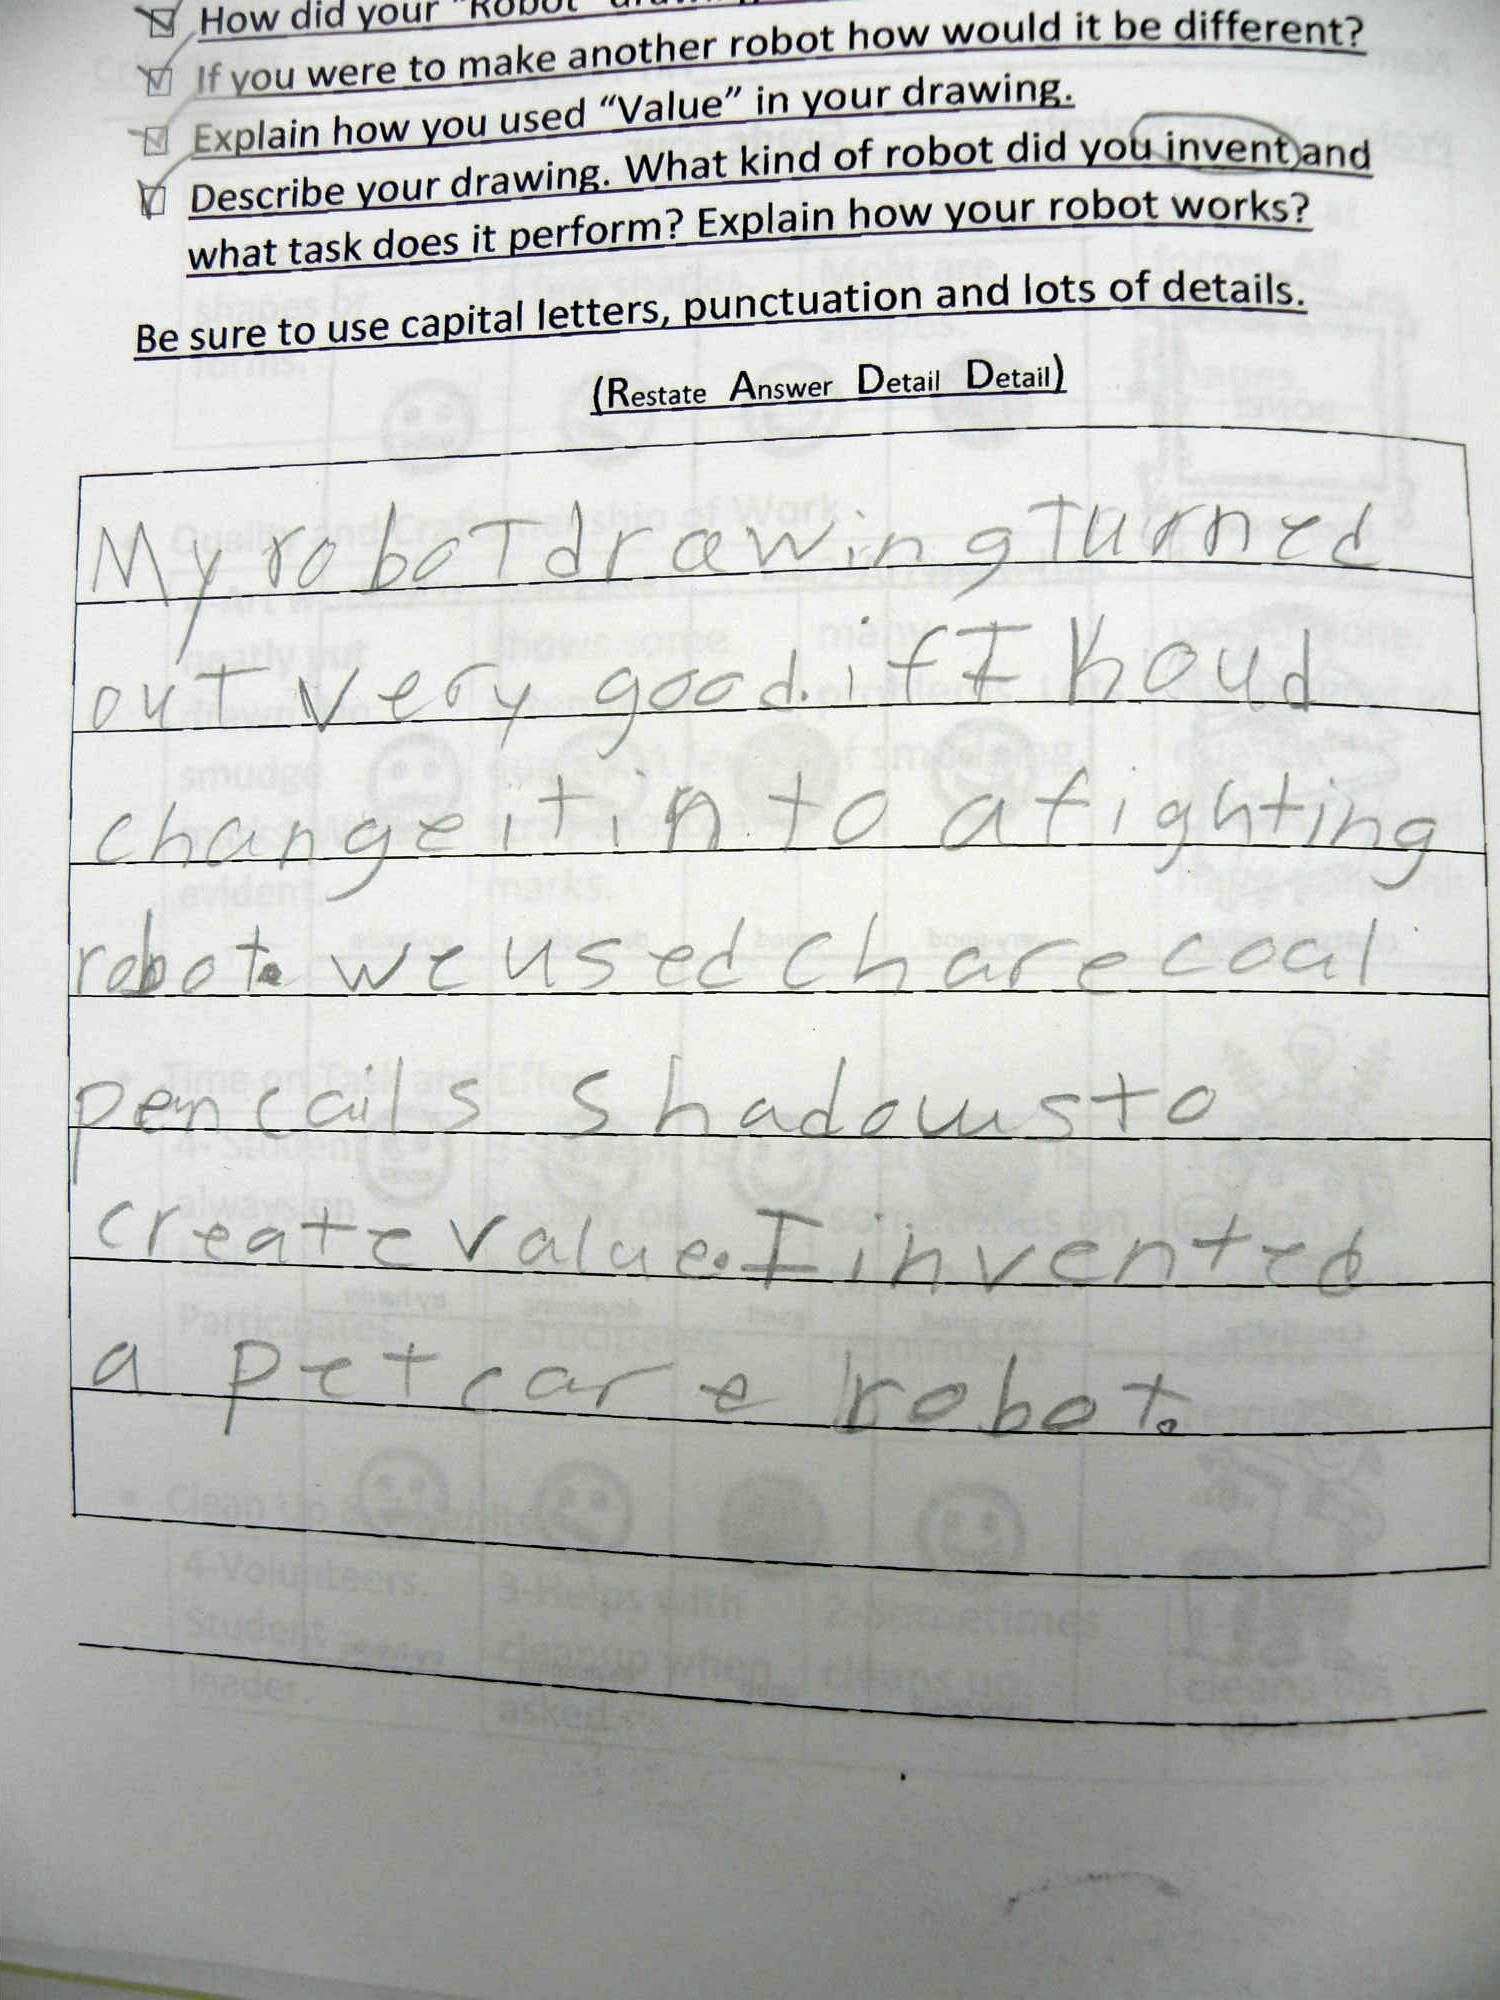 How did your "Robot"
If you were to make another robot how would it be different?
Explain how you used “Value” in your drawing.
Describe your drawing. What kind of robot did you invent and
what task does it perform? Explain how your robot works?
Be sure to use capital letters, punctuation and lots of details.
(Restate Answer Detail Detail)
My robot drawing turned
out very good. if I koud
change it in to a fighting
robot. we used charecoal
pencails shadows to
create value. I invented
a pet care robot.